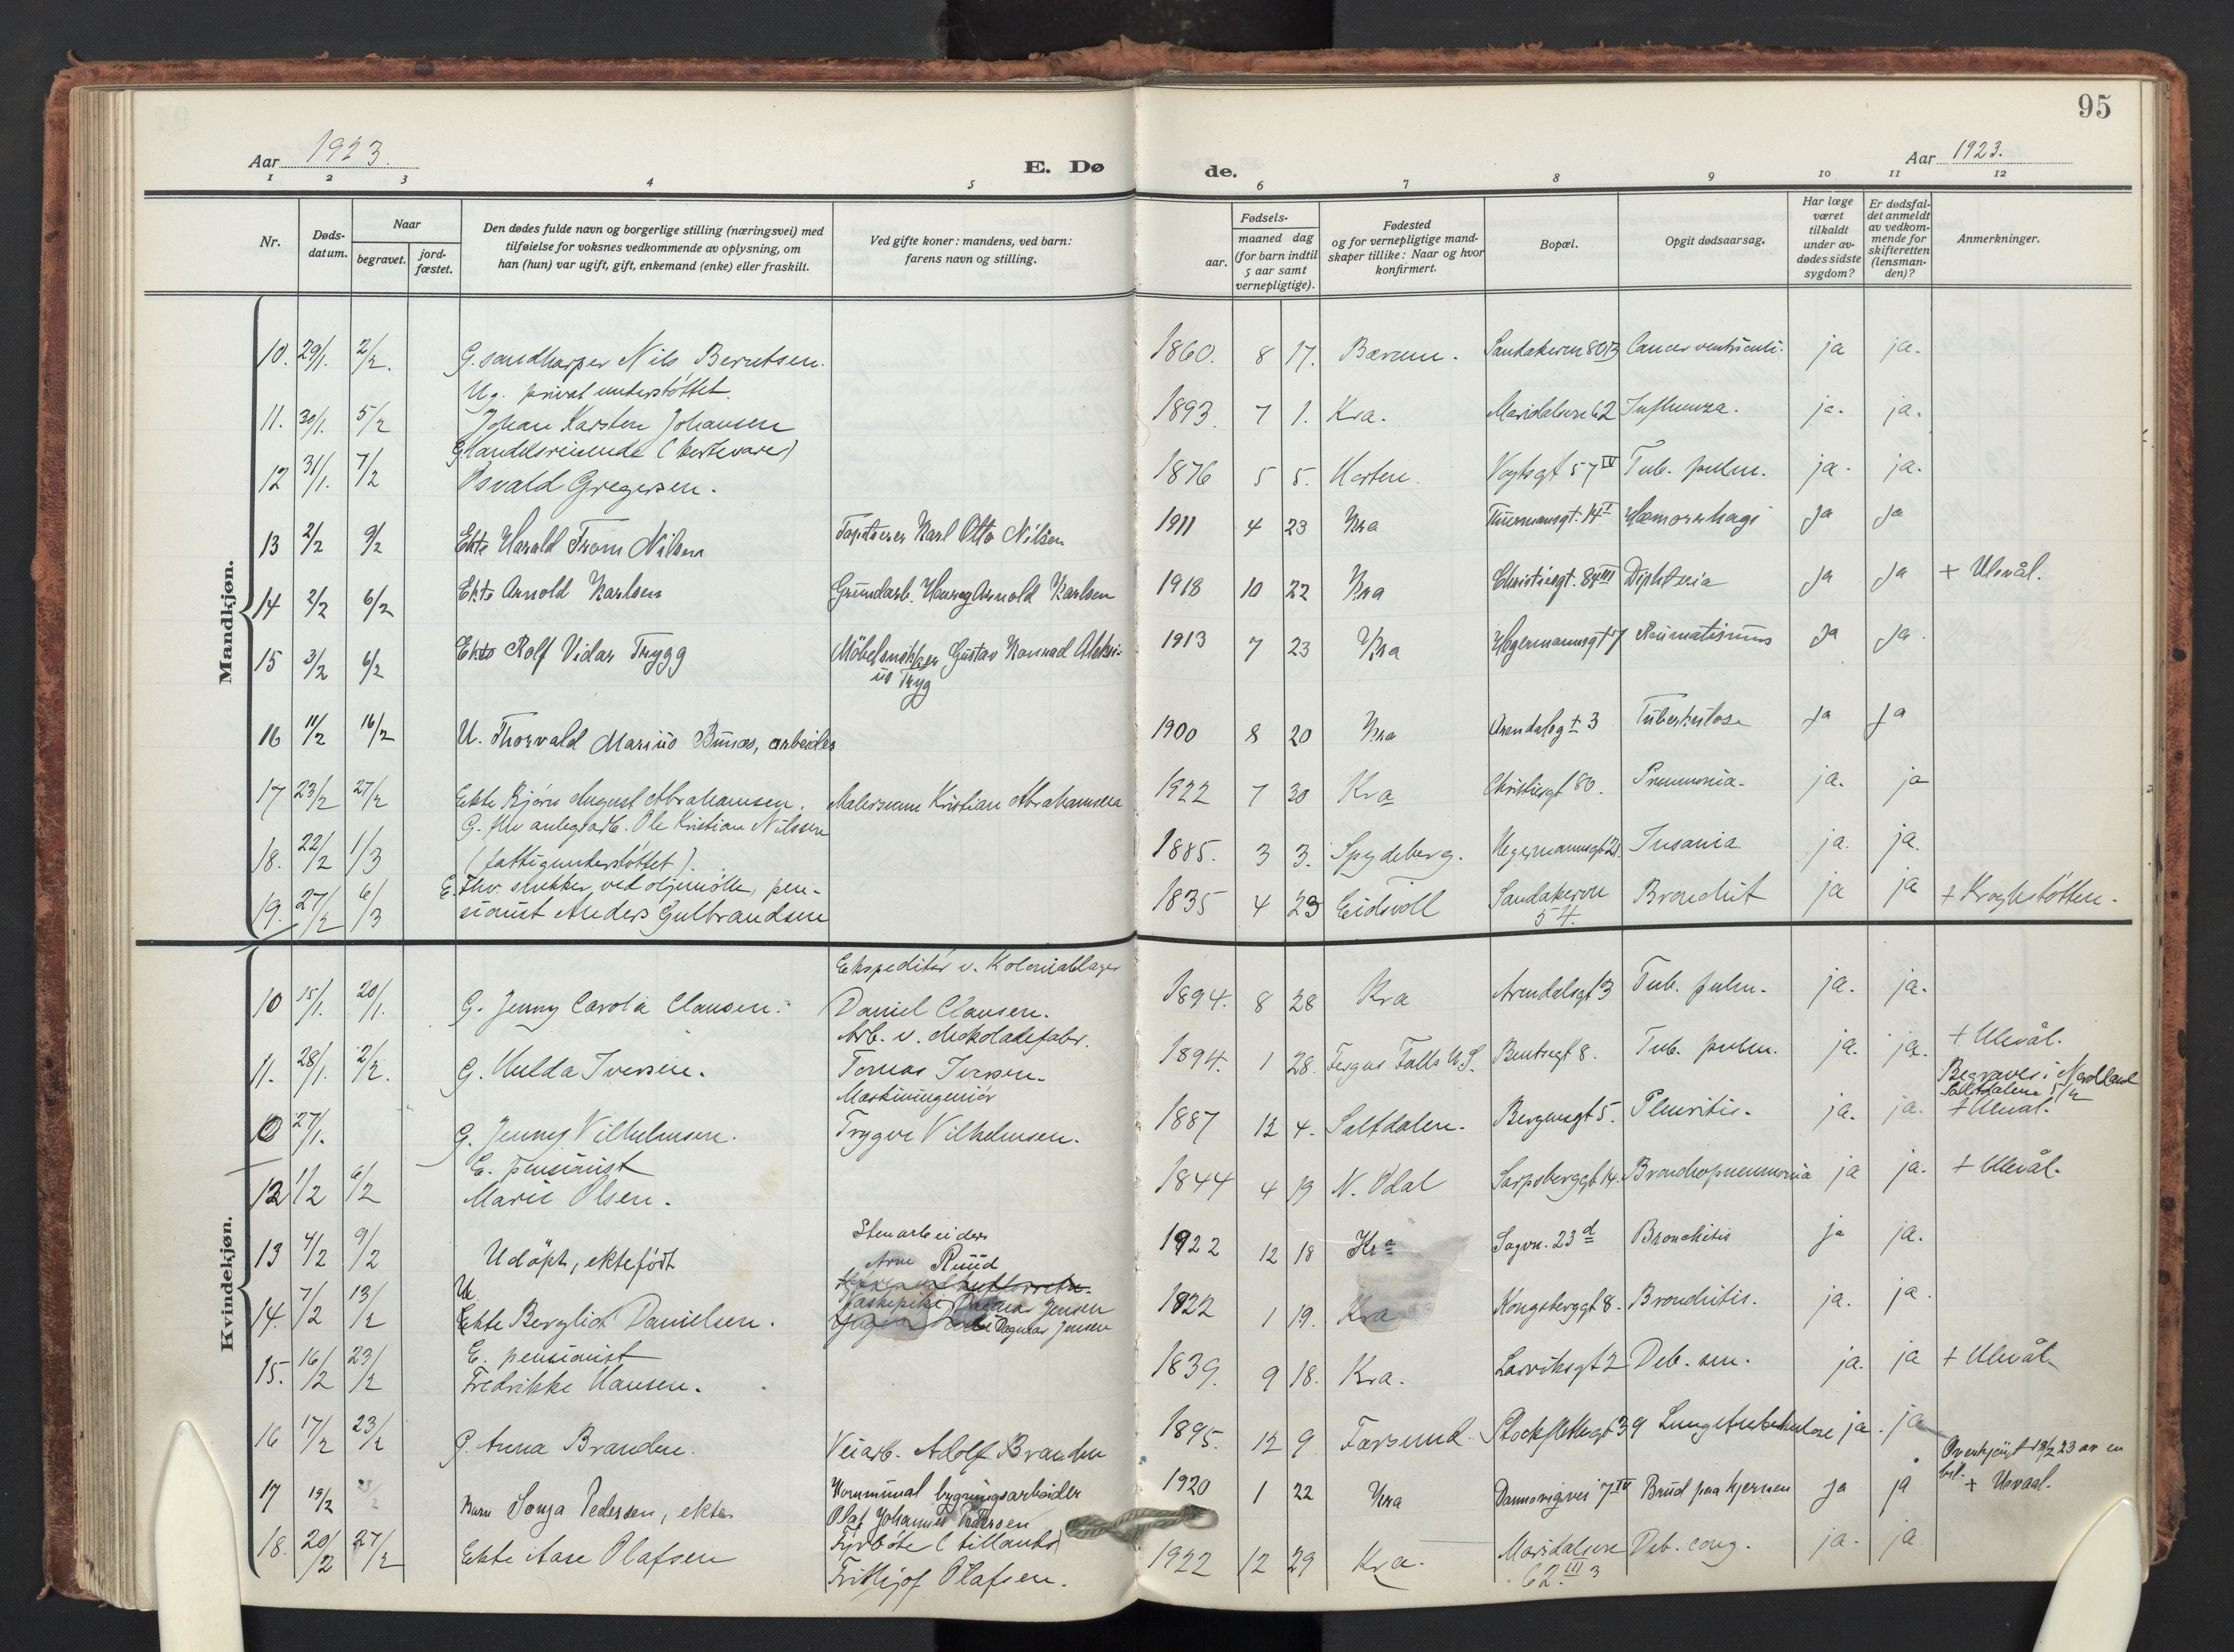 95
Aar 1923.
E. Døde.
Aar 1923.
1 2 3 4 5 6 7 8 9 10 11 12
Nr.
Døds-datum.
Naar
begravet.
jord-fæstet.
Den dødes fulde navn og borgerlige stilling (næringsvei) med
tilføielse for voksnes vedkommende av oplysning, om
han (hun) var ugift, gift, enkemand (enke) eller fraskilt.
Ved gifte koner: mandens, ved barn:
farens navn og stilling.
Fødsels-
aar.
maaned dag
(for barn indtil
5 aar samt
vernepligtige).
Fødested
og for vernepligtige mand-
skaper tillike: Naar og hvor
konfirmert.
Bopæl.
Opgit dødsaarsag.
Har læge
været
tilkaldt
under av-
dødes sidste
sygdom?
Er dødsfal-
det anmeldt
av vedkom-
mende for
skifteretten
(lensman-
den)?
Anmerkninger.
Mandkjøn.
10. 29/1. 2/2. G. sandharper Nils Berntsen. 1860. 8 17. Bærum. Sandakervn 80B Cancer ventriculi. ja ja.
Ug. privat understøttet.
11. 30/1. 5/2 Johan Karsten Johansen 1893. 7 1. Kra. Maridalsvn 62 Influenza. ja. ja.
G. Handelsreisende (kortevare)
12 31/1. 7/2 Osvald Gregersen. 1876 5 5. Horten. Vogtsgt 57 IV Tub. pulm. ja. ja.
13 2/2 9/2 Ekte Harald From Nilsen Tapetserer Karl Otto Nilsen 1911 4 23 Kra Thurmannsgt. 14 I Hæmorrhagi Ja Ja
14 2/2 6/2 Ekte Arnold Karlsen Grundarb. Arnold Karlsen 1918 10 22 Kra Christiesgt. 84 III Diphteria Ja Ja + Ulevål.
15 3/2 6/2 Ekte Rolf Vidar Trygg Möbelsnekker Gustav Konrad Aleksi-
us Tryg 1913 7 23 Kra Hegermannsgt 17 Reumatismus Ja Ja
16 11/2 16/2 U. Thorvald Marius Bunæs, arbeider 1900 8 20 Kra Arendalsgt 3 Tuberkulose Ja Ja
17 23/2 27/2 Ekte Bjørn August Abrahamsen. Malersvenn Kristian Abrahamsen 1922 7 30 Kra Christiesgt 80. Pneumonia. ja. ja
G. fhv anlegsarb. Ole Kristian Nilssen
18. 22/2 1/3 (fattigunderstøttet). 1885. 3 3. Spydeberg. Hegermannsgt 21. Insania ja. ja.
E. Fhv. snekker ved oljemølle, pen-
19. 27/2 6/3 sionist Anders Gulbrandsen 1835 4 23 Eidsvoll Sandakervn 54. Bronchit ja ja + Krohgstøtten.
Kvindekjøn.
Ekspeditør v. Koloniallager
10 15/1. 20/1. G. Jenny Carola Clausen. Daniel Clausen. 1894. 8 28 Kra Arendalsgt 3 Tub. pulm. ja. ja.
Arb. v. chokoladefabr.
11. 28/1. 2/2. G. Hulda Iversen. Tomas Iversen. 1894. 1 28. Fergus Falls U.S. Bentsegt 8. Tub. pulm. ja. ja. + Ulevål.
Maskiningeniør Begraves i Nordland
Saltdalen
27/1. G. Jenny Vilhelmsen. Trygve Vilhelmsen. 1887 12 4. Saltdalen. Bergensgt 5. Pleuritis. ja. ja. + Ulevål.
E. pensionist
12 1/2 6/2 Marie Olsen. 1844 4 19 N. Odal Sarpsborggt 14. Bronchopneumonia ja ja. + Ulevål.
Stenarbeider
13 4/2 9/2 Udöpt, ektefödt Arne Ruud 1922 12 18 Kra Sagvn. 23 d Bronchitis ja ja.
U
14. 7/2 13/2 Ekte Bergliot Danielsen. Vaskepike Dagmar Jensen 1922 1 19. Kra Kongsberggt 8. Bronchitis. ja. ja.
Dagmar Jensen
E. pensionist
15. 16/2 23/2 Fredrikke Hansen. 1839. 9 18. Kra. Larviksgt 2 Deb. sen. ja. ja + Ulevål.
16 17/2 23/2 G. Anna Branden. Veiarb. Adolf Branden 1895. 12 9 Farsund. Stockfletsgt 39 Lungetuberkulose ja. ja
Overkjört 19/2 23 av en
bil. + Ulevaal.
17 19/2 Barn Sonja Pedersen, ekte Kommunal bygningsarbeider
Olaf Johannes Pedersen 1920 1 22 Kra Dannevigsvei 7 IV Brud paa hjernen Ja ja
18. 20/2 27/2 Ekte Aase Olafsen Fyrbøter (tillands)
Frithjof Olafsen. 1922 12 29 Kra. Maridalsvn
62 III 3 Deb. cong. ja. ja